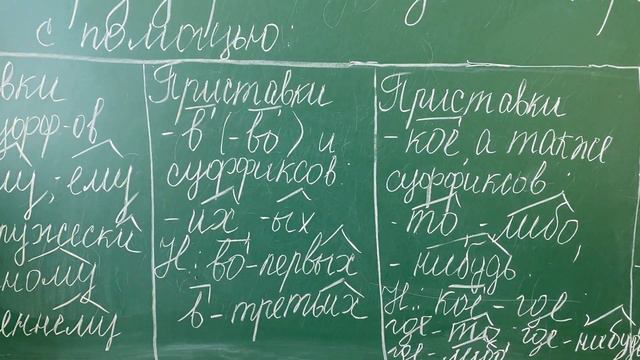 с помощью:
вки
суфф-ов
му, -ему
ружески
ному
еннему
Приставки
-в (-во) и
суффиксов:
-их, -ых
Н.: во-первых
в-третьих
Приставки
-кое, а также
суффиксов:
-то, -либо,
-нибудь.
Н.: кое-где
где-то, где-нибудь
где-либо